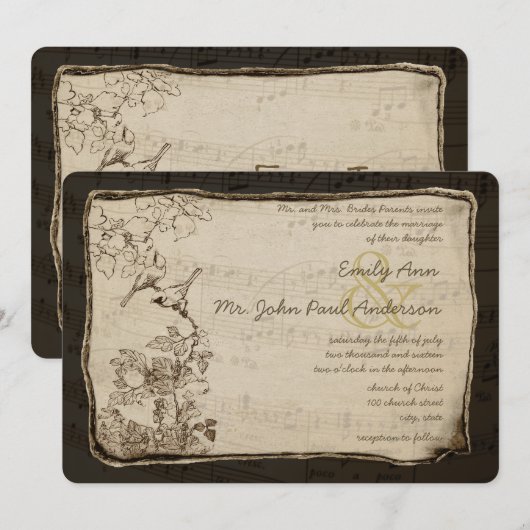 Mr. and Mrs. Brides Parents invite
you to celebrate the marriage
of their daughter
Emily Ann
&
Mr. John Paul Anderson
saturday the fifth of july
two thousand and sixteen
two o'clock in the afternoon
church of Christ
100 church street
city, state
reception to follow
poco
a
poco